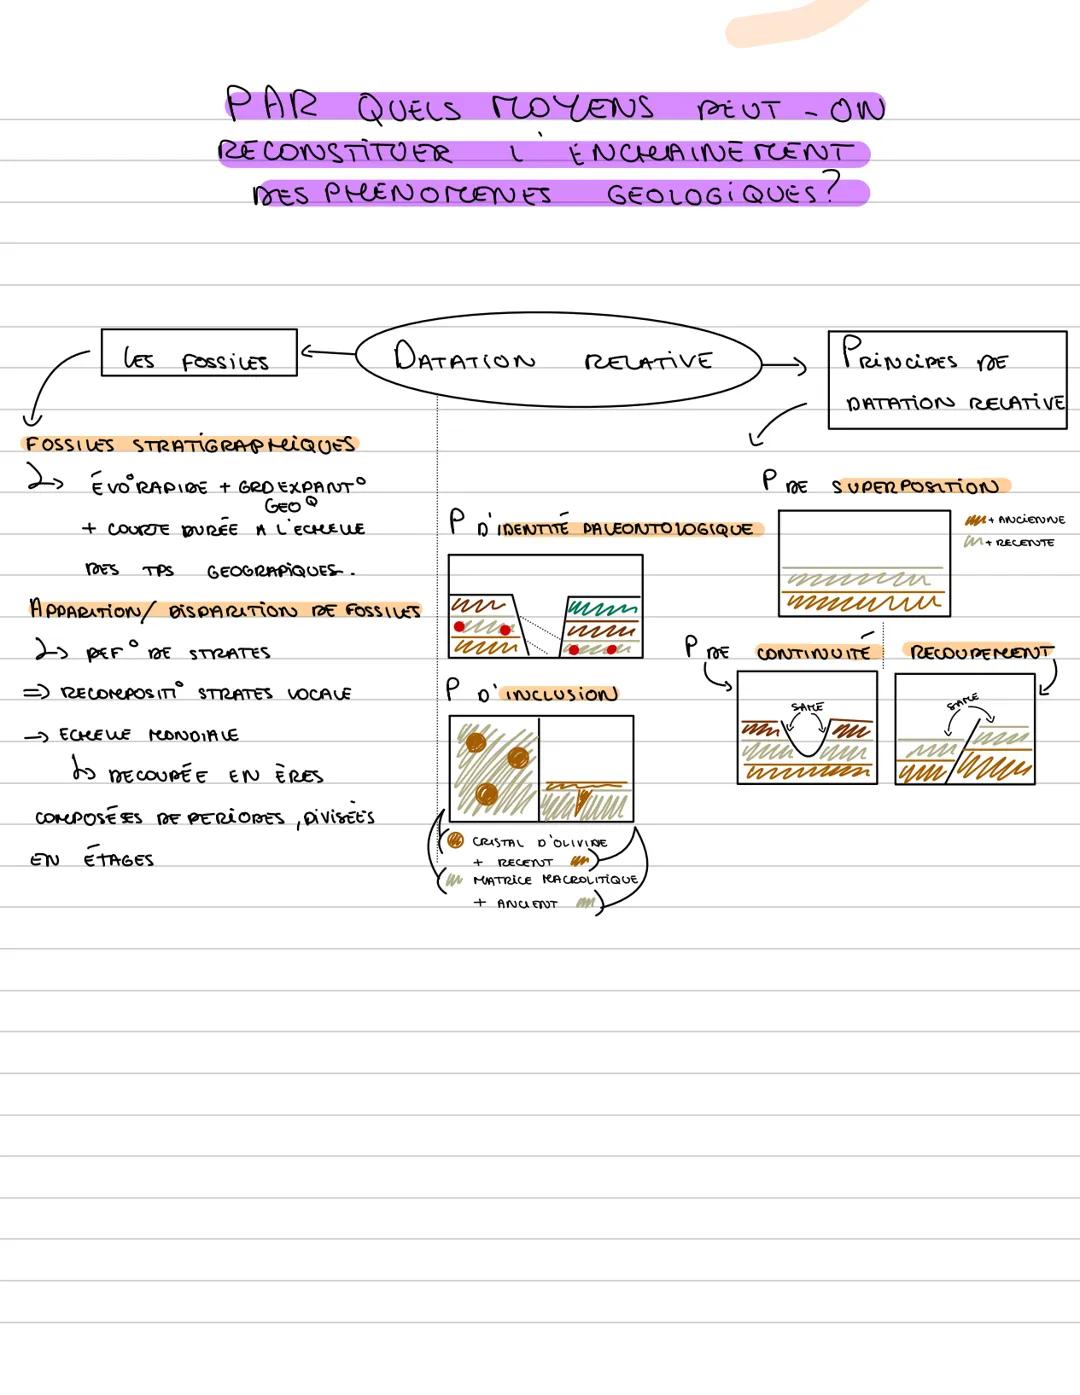 PAR QUELS MOYENS PEUT-ON
RECONSTITUER L'ENCHAINEMENT
DES PHENOMENES GEOLOGIQUES?
LES FOSSILES
DATATION RELATIVE
PRINCIPES DE
DATATION RELATIVE
FOSSILES STRATIGRAPHIQUES
ÉVO° RAPIDE + GRD EXPANT°
GEOQ
+ COURTE DURÉE A L'ECHELLE
DES TPS GEOGRAPIQUES.
APPARITION/ DISPARITION DE FOSSILES
DEF° DE STRATES
=> RECOMPOSITI° STRATES LOCALE
→ ECHELLE MONDIALE
↳ DECOUPÉE EN ÈRES
COMPOSÉES DE PERIODES, DIVISÉES
EN ÉTAGES
P D'IDENTITÉ PALEONTOLOGIQUE
P D'INCLUSION
CRISTAL D'OLIVINE
+ RECENT
MATRICE MACROLITIQUE
+ ANCIENT
P DE SUPERPOSITION
+ ANCIENNE
+ RECENTE
P DE CONTINUITÉ
RECOUPEMENT
SAME
SAME